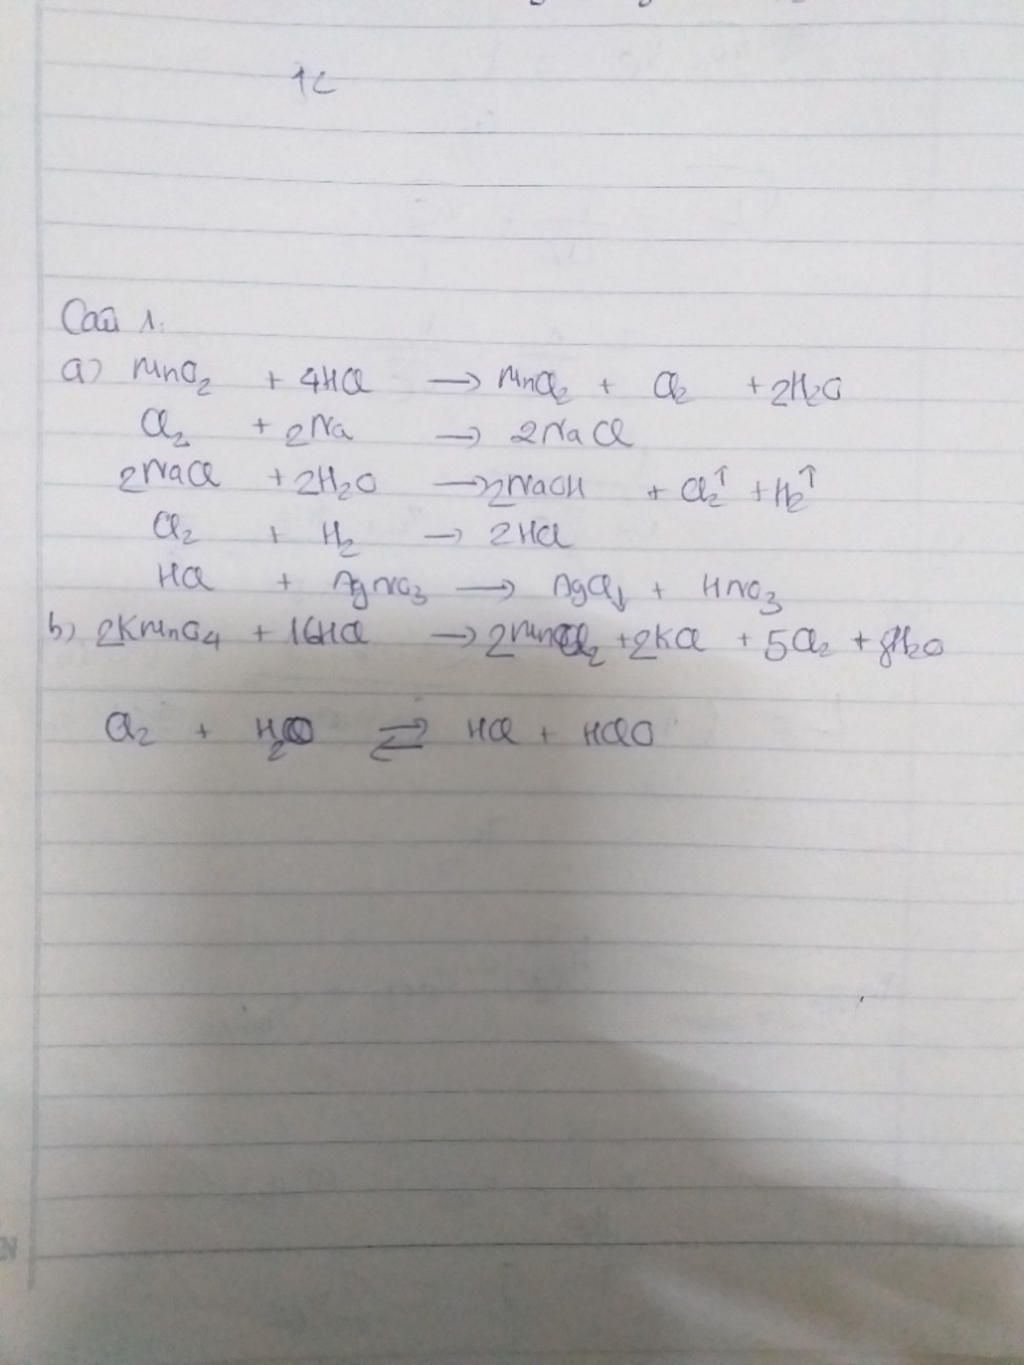 1c
Câu 1.
a) MnO2 + 4HCl → MnCl2 + Cl2 + 2H2O
Cl2 + 2Na → 2NaCl
2NaCl + 2H2O → 2NaOH + Cl2↑ + H2↑
Cl2 + H2 → 2HCl
HCl + AgNO3 → AgCl↓ + HNO3
b) 2KMnO4 + 16HCl → 2MnCl2 + 2KCl + 5Cl2 + 8H2O
Cl2 + H2O ⇌ HCl + HClO